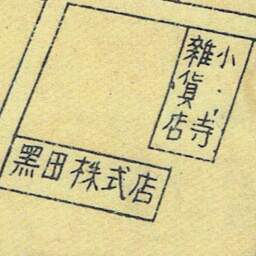 小寺
雜貨店
黑田株式店